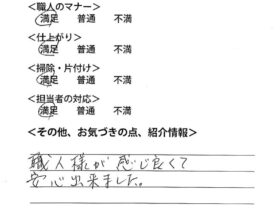 <職人のマナー>
満足 普通 不満
<仕上がり>
満足 普通 不満
<掃除・片付け>
満足 普通 不満
<担当者の対応>
満足 普通 不満
<その他、お気づきの点、紹介情報>
職人様が感じ良くて
安心出来ました。